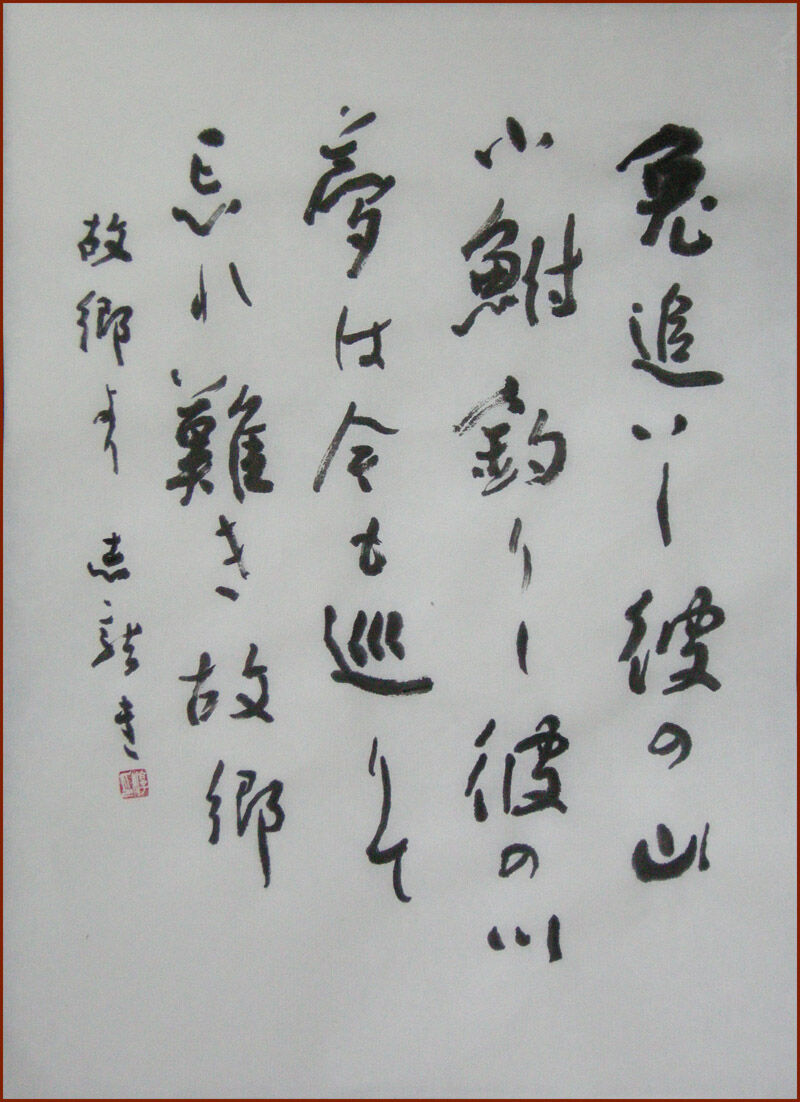 兎追いし彼の山
小鮒釣りし彼の川
夢は今も巡りて
忘れ難き故郷
故郷より 志龍書